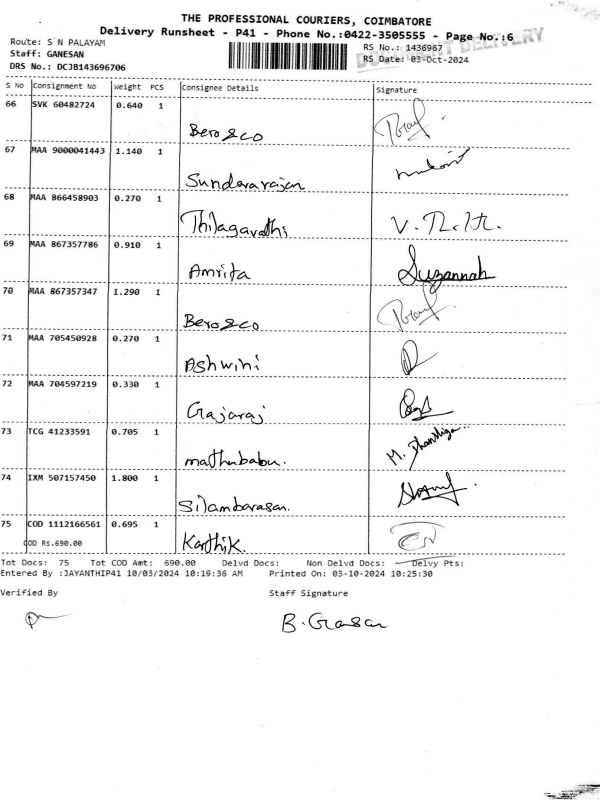 THE PROFESSIONAL COURIERS, COIMBATORE
Delivery Runsheet - P41 - Phone No.:0422-3505555 - Page No.:6
Route: S N PALAYAM
Staff: GANESAN
DRS No.: DCJB143696706
RS No.: 1436967
RS Date: 03-Oct-2024
DOCUMENT DELIVERY
S No Consignment No Weight PCS Consignee Details Signature
66 SVK 60482724 0.640 1
Bero & co
67 MAA 9000041443 1.140 1
Sundararajan
68 MAA 866458903 0.270 1
Thilagavathi
69 MAA 867357786 0.910 1
Amrita Suzannah
70 MAA 867357347 1.290 1
Bero & co
71 MAA 705450928 0.270 1
Ashwini
72 MAA 704597219 0.330 1
Gajaraj
73 TCG 41233591 0.705 1
mathubabu.
74 IXM 507157450 1.800 1
Silambarasan.
75 COD 1112166561 0.695 1
COD RS.690.00 Karthik.
Tot Docs: 75 Tot COD Amt: 690.00 Delvd Docs: Non Delvd Docs: Delvy Pts:
Entered By :JAYANTHIP41 10/03/2024 10:19:36 AM Printed On: 03-10-2024 10:25:30
Verified By Staff Signature